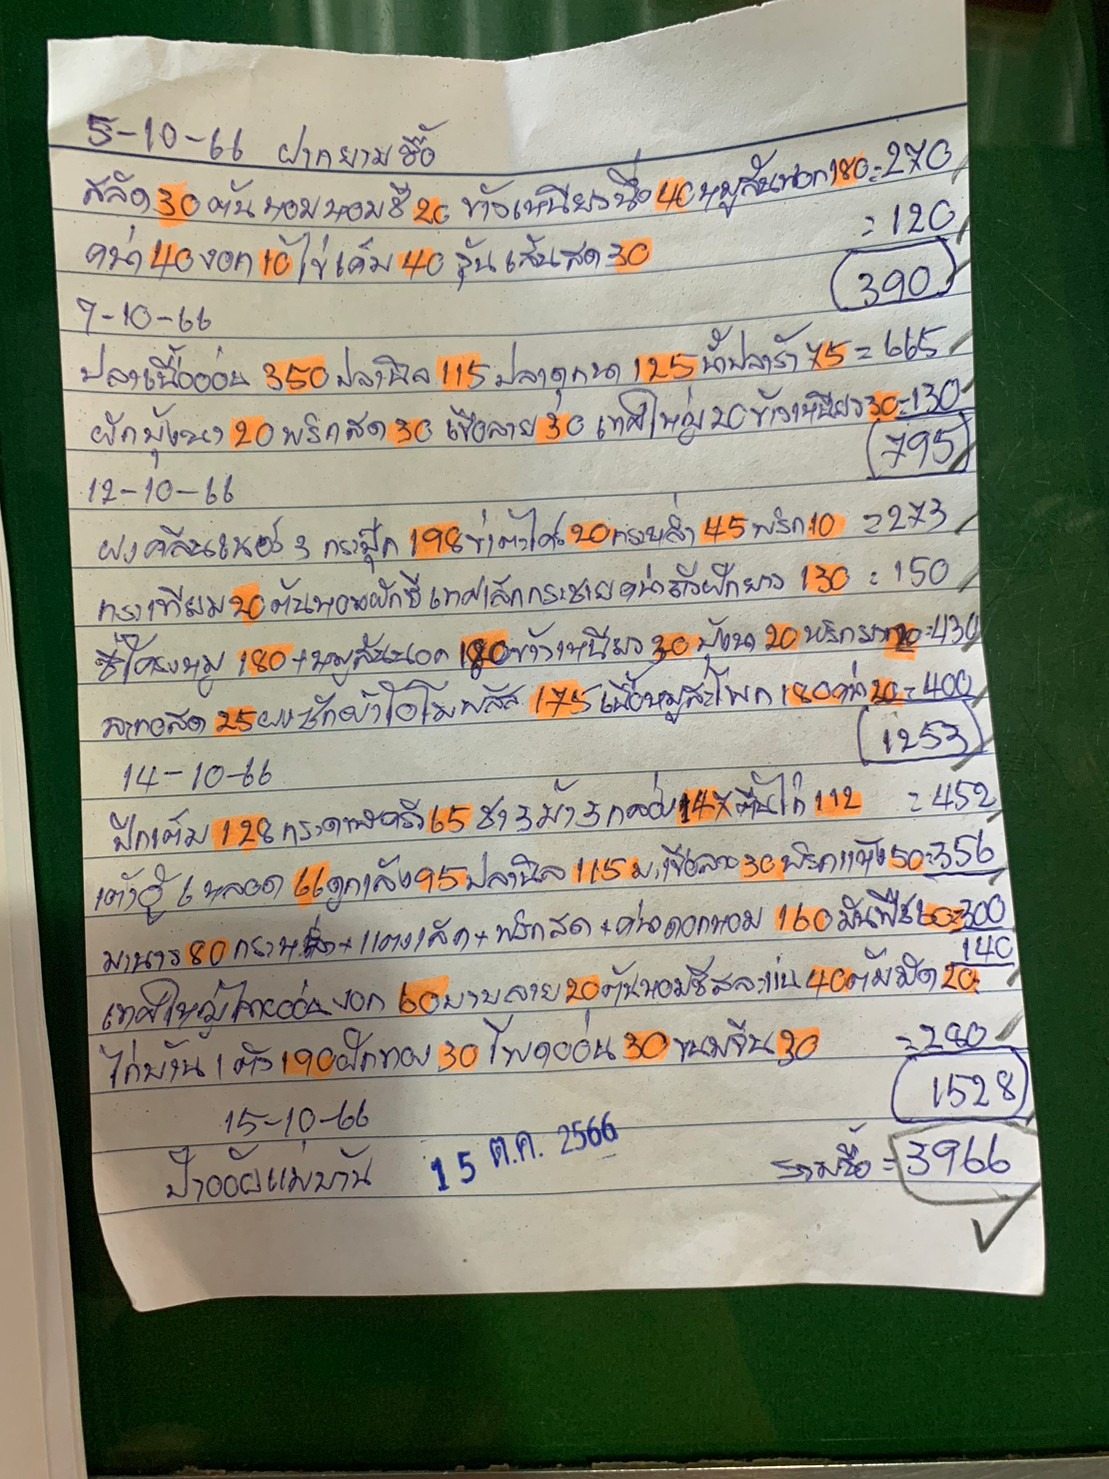 5-10-66 ฝากยามซื้อ
สลัด 30 ต้นหอมหอมชี 20 ข้าวเหนียวนึ่ง 40 หมูสันนอก 180 = 270
คน่า 40 งอก 10 ไข่เค็ม 40 วุ้นเส้นสด 30 = 120
390
9-10-66
ปลาเนื้ออ่อน 350 ปลานิล 115 ปลาดุกนา 125 น้ำปลาร้า 75 = 665
ผักบุ้งนา 20 พริกสด 30 เขือลาย 30 เทศใหญ่ 20 ข้าวเหนียว 30 = 130
795
12-10-66
ผงคลีนเนอร์ 3 กระปุ๊ก 198 ข่าตะไคร้ 20 กะหล่ำ 45 พริก 10 = 273
กระเทียม 20 ต้นหอมผักชีเทศเล็กกระชายคน่าถั่วฝักยาว 130 = 150
ซี่โครงหมู 180 + หมูสันนอก 180 ข้าวเหนียว 30 บุ้งนา 20 พริกยาว 20 = 430
ละกอสด 25 ผงซักผ้าโอโมพลัส 175 เนื้อหมูสะโพก 180 คน่า 20 = 400
1253
14-10-66
ปีกเต็ม 128 กระดาษ 65 ชา 3 ม้า 3 กล่อง 147 ตีนไก่ 112 = 452
เต้าหู้ 6 หลอด 66 ลูกเล้ง 95 ปลานิล 115 ม.เขือลาย 30 พริกแห้ง 50 = 356
มานาว 80 กะหล่ำ + แตงเล็ก + พริกสด + คน่าดอกหอม 160 มันฟืช 60 = 300
เทศใหญ่ งอก 60 ลาย 20 ต้นหอมชีสะแน่ 40 ต้มมัด 20 = 140
ไก่บ้าน 1 ตัว 190 ฝักทอง 30 โพดอ่อน 30 ขนมจีน 30 = 280
1528
15-10-66
ป้าออ๊ดแม่บ้าน 15 ต.ค. 2566 รวมซื้อ = 3966